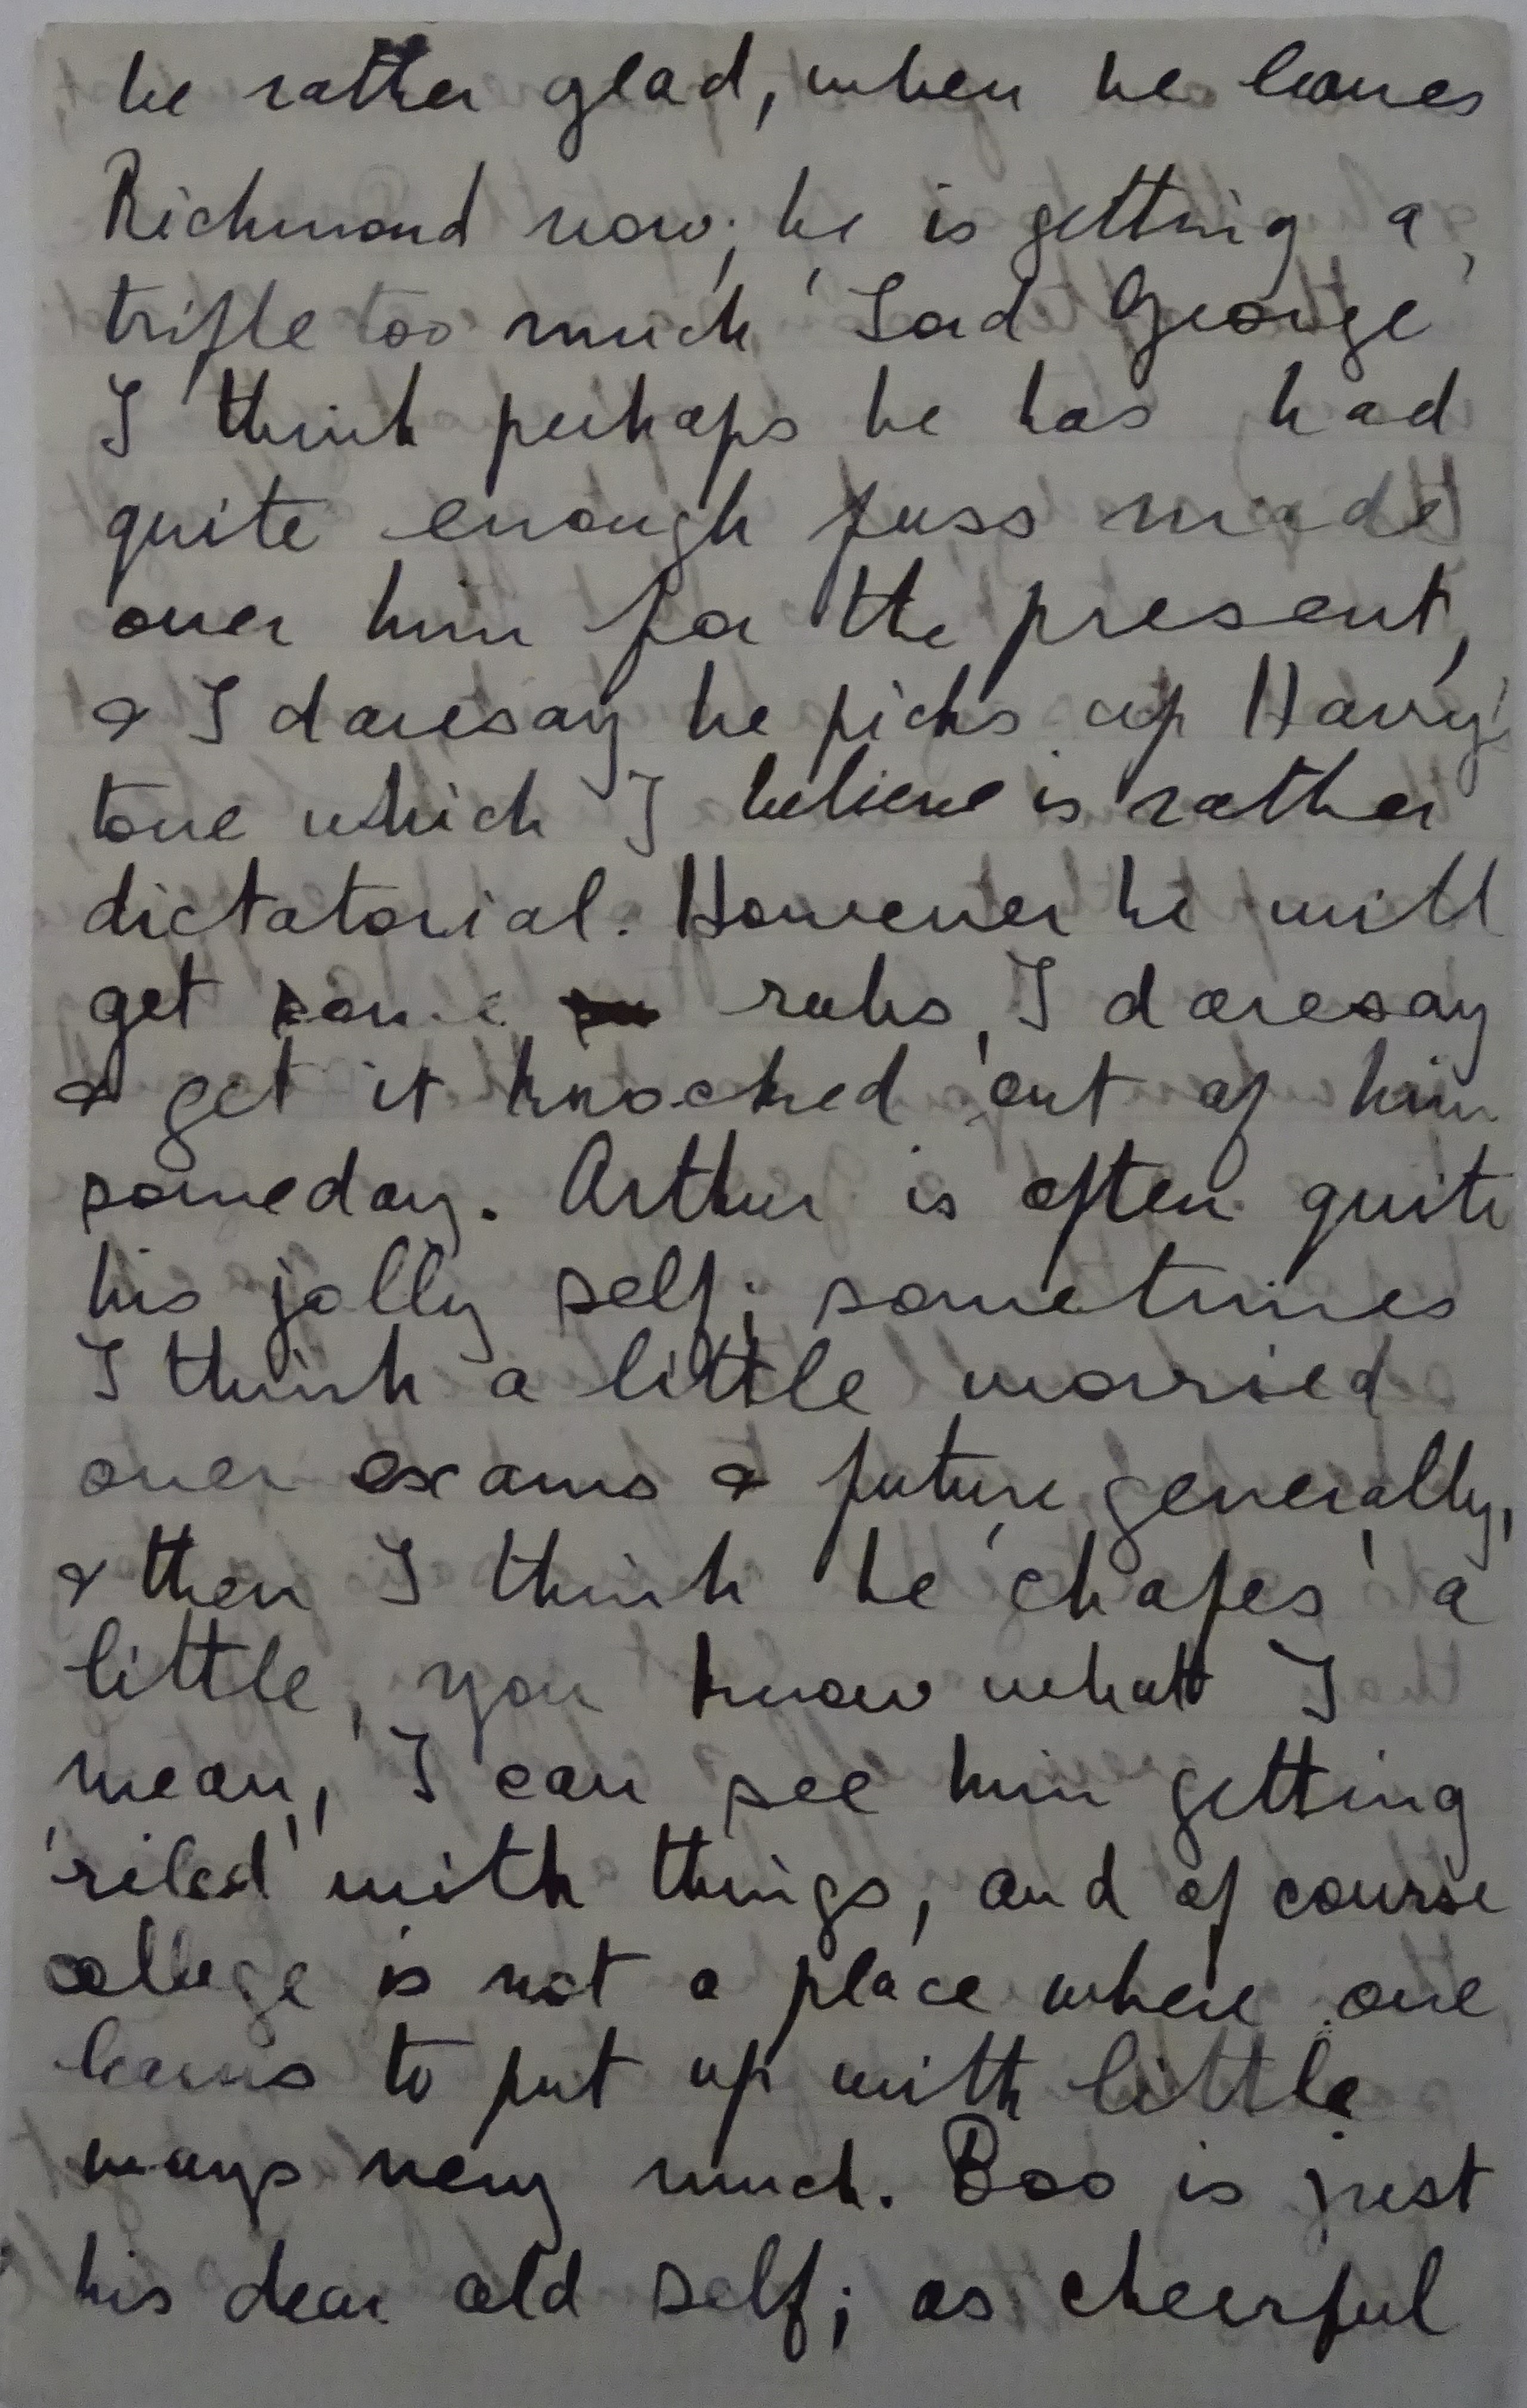 be rather glad, when he leaves
Richmond now; he is getting a
trifle too much 'Lord George'
I think perhaps he has had
quite enough fuss made
over him for the present,
& I daresay he picks up Harry's
tone which I believe is rather
dictatorial. However he will
get some rubs, I daresay
& get it knocked out of him
someday. Arthur is often quite
his jolly self; sometimes
I think a little worried
over exams & future generally,
& then I think he 'chafes' a
little, you know what I
mean, I can see him getting
'riled' with things, and of course
college is not a place where one
learns to put up with little
ways very much. Boo is just
his dear old self; as cheerful